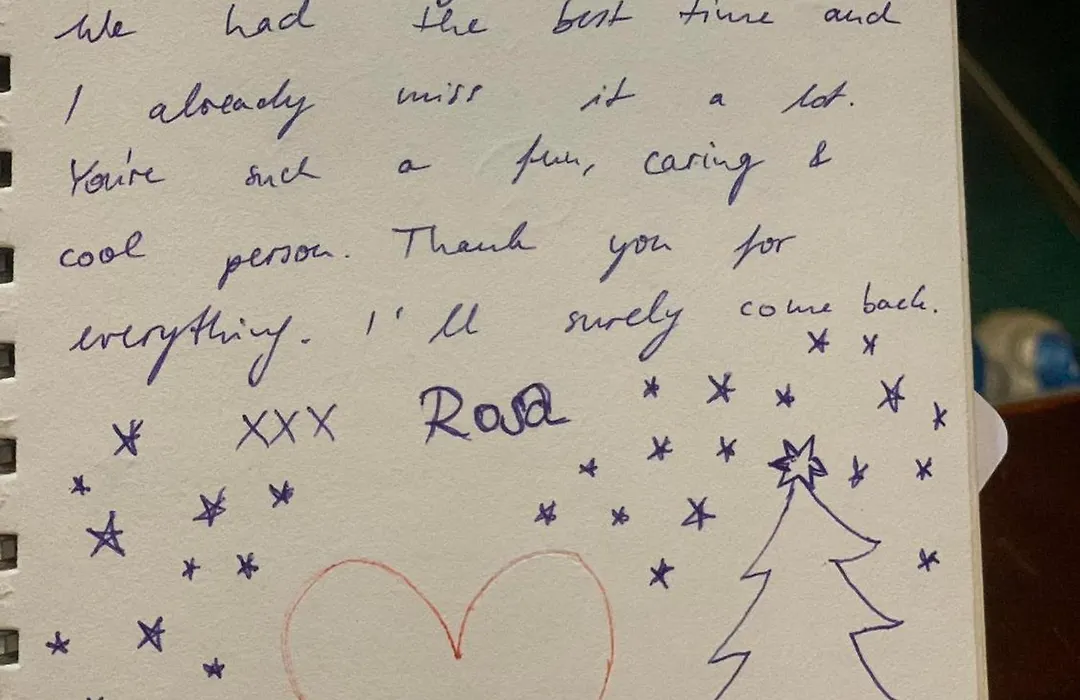 We had the best time and
I already miss it a lot.
You're such a fun, caring &
cool person. Thank you for
everything. I'll surely come back.
XXX Rosa